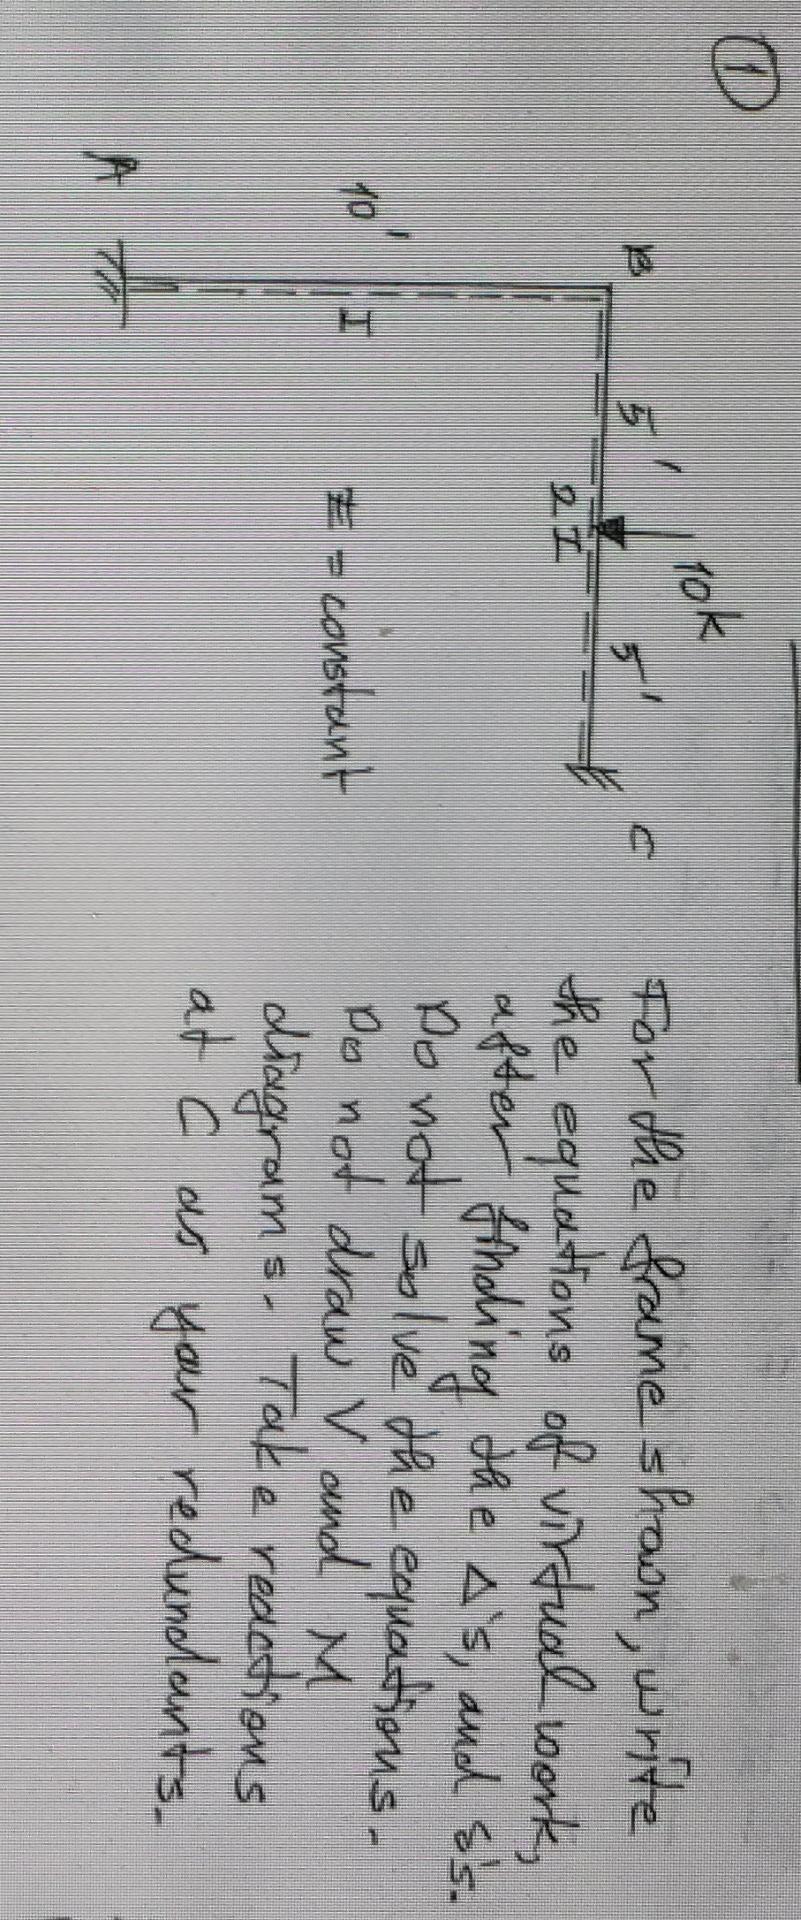 1
B
5'
10k
5'
C
2I
10'
I
E = constant
A
For the frame shown, write
the equations of virtual work,
after finding the Δ's, and δ's.
Do not solve the equations.
Do not draw V and M
diagrams. Take reactions
at C as your redundants.